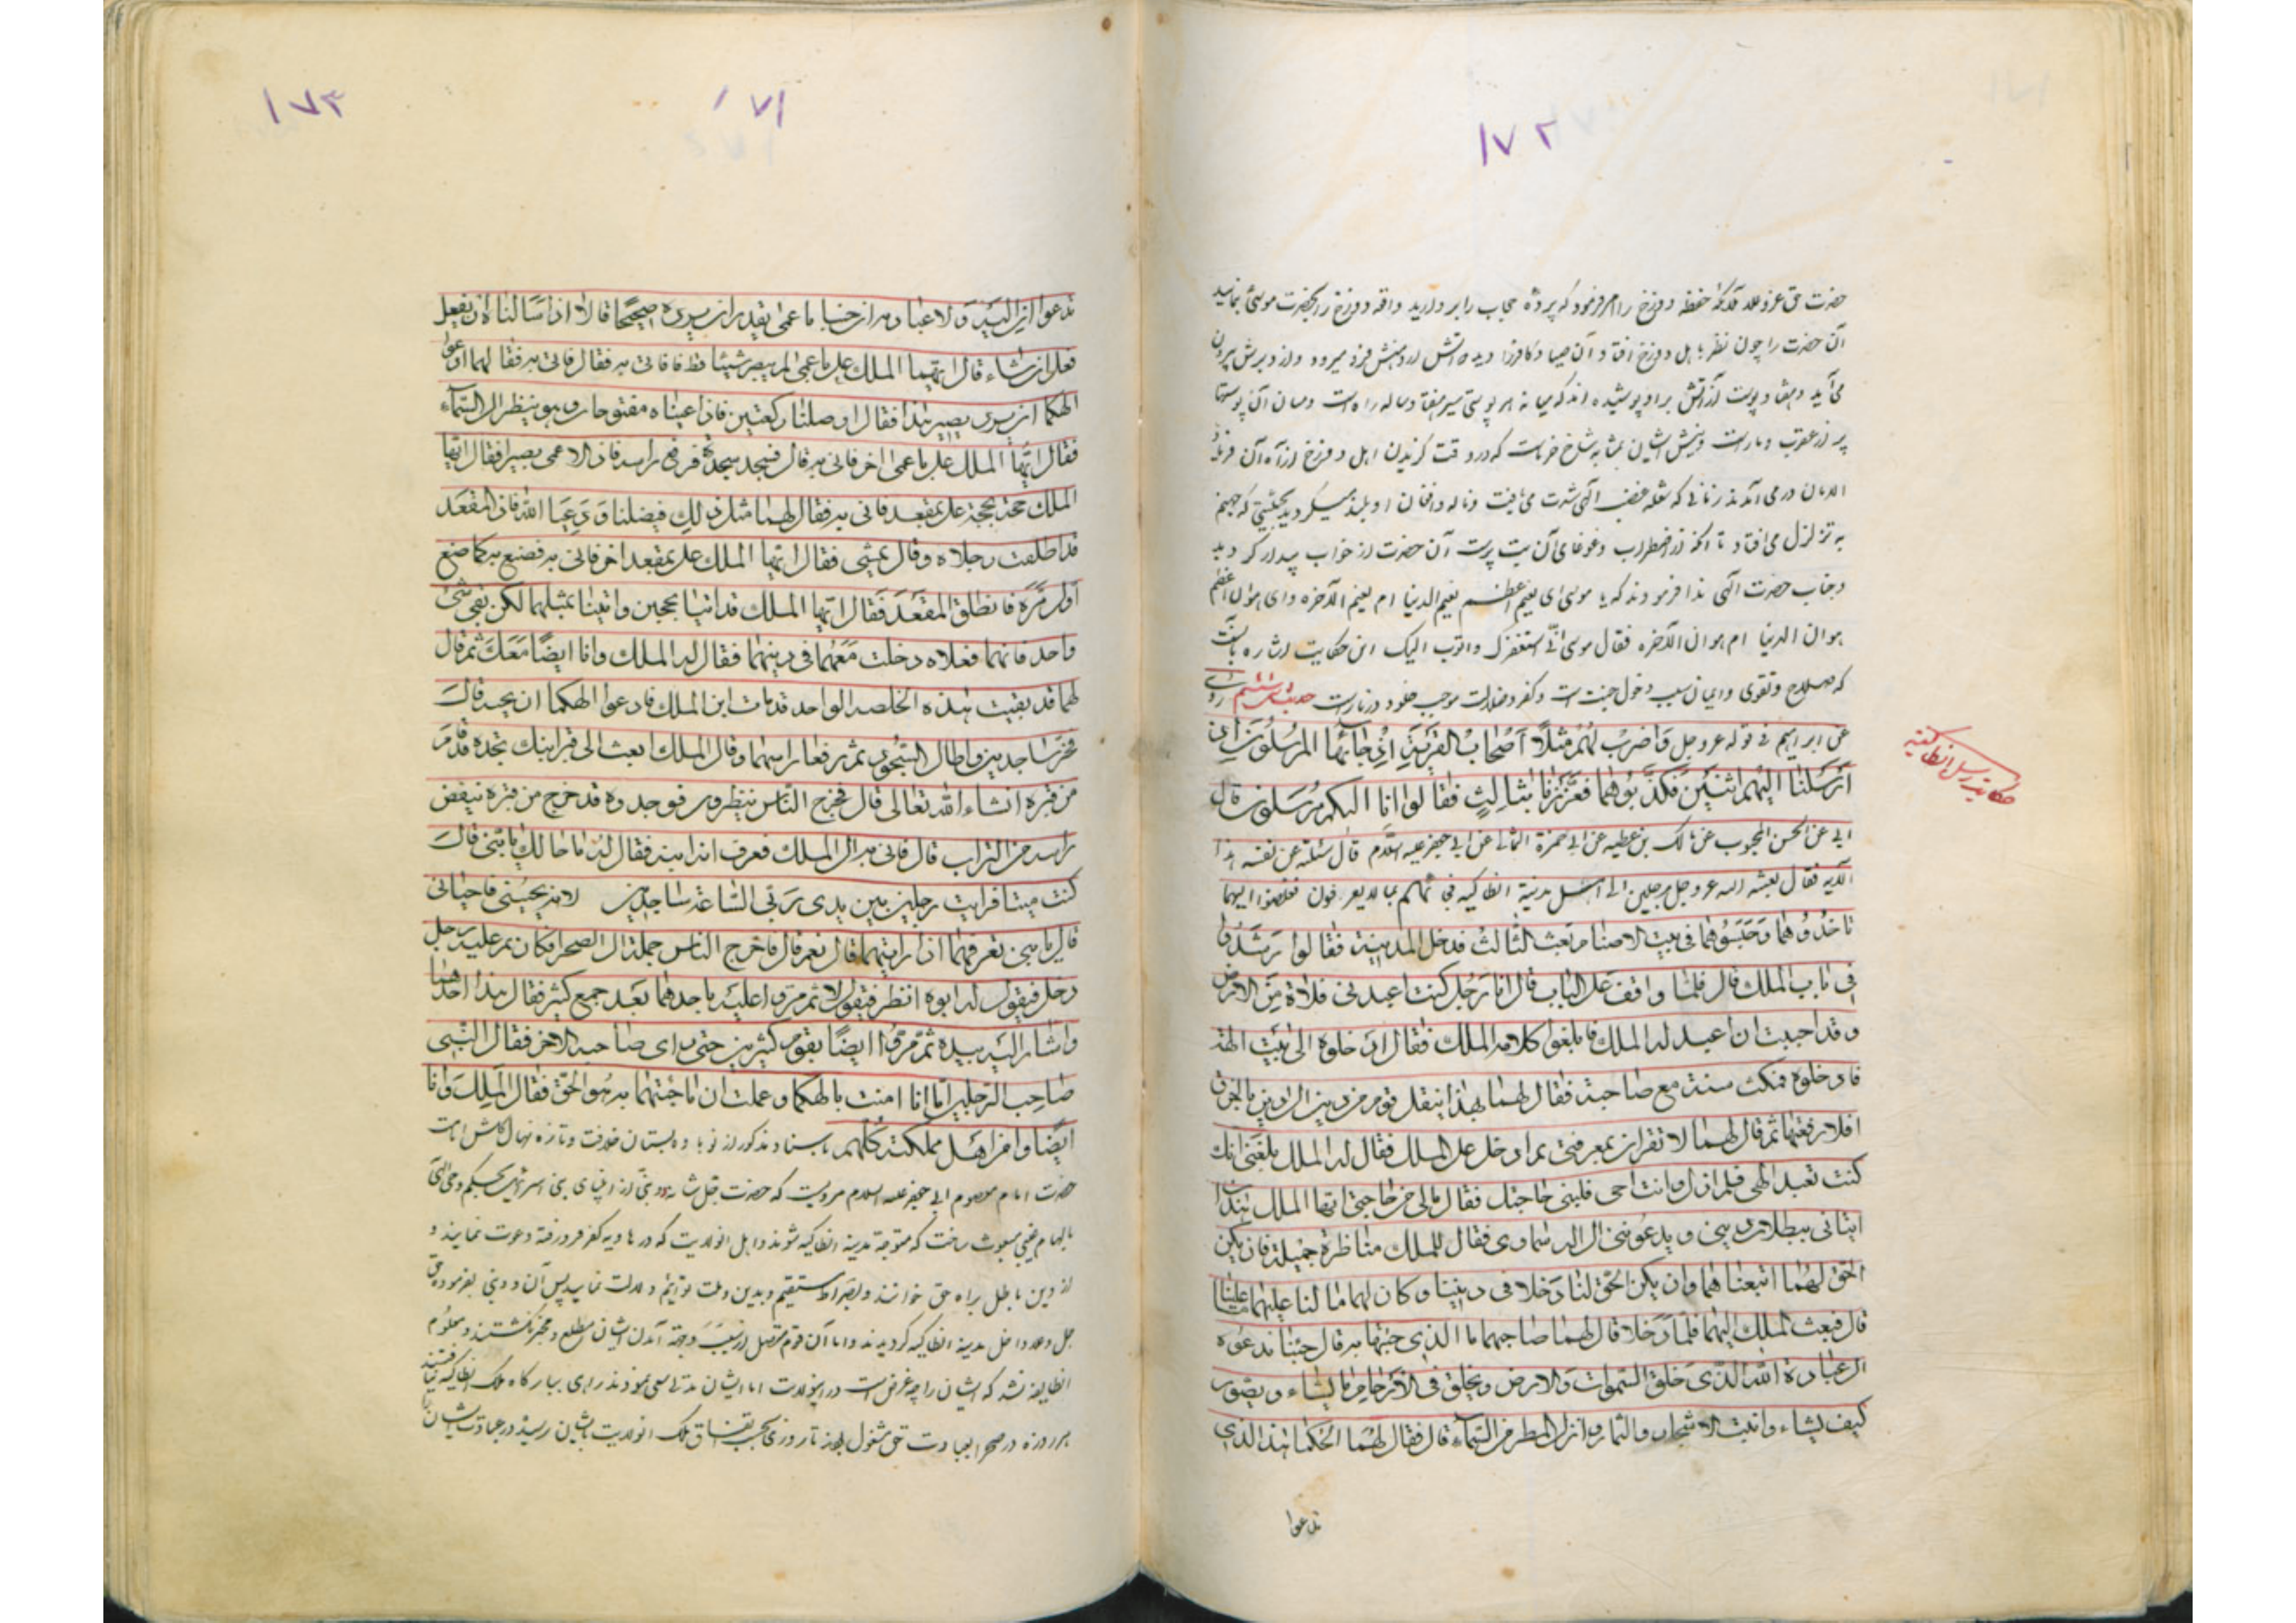 ۱۷۲
حضرت حق عز و علا ملائکه حفظه دوزخ را امر فرمود که پرده حجاب را بردارید و اقه دوزخ را بحضرت موسی بنمائید
آن حضرت را چون نظر باهل دوزخ افتاد آن صیاد کافر را دید که آتش از دهنش فرو میرود و از دبرش بیرون
می آید و هفتاد پوست از آتش بر او پوشیده اند که میانه هر پوستی مسیر هفتاد ساله راه است و میان آن پوستها
پر از عقرب و مار است و نیش ایشان بمثابه شاخ خرماست که در وقت گزیدن اهل دوزخ از آه آن فریاد
الامان در می آمدند زمانی که شعله غضب الهی شدت می یافت و ناله و افغان او بلند میگردید بحیثیتی که جهنم
به تزلزل می افتاد تا آنکه از اضطراب و غوغای آن بت پرست آن حضرت از خواب بیدار گردید
و جناب حضرت الهی ندا فرمودند که یا موسی ای نعیم اعظم نعیم الدنیا ام نعیم الآخره و ای هوان اعظم
هوان الدنیا ام هوان الآخره فقال موسی انی استغفرک و اتوب الیک این حکایت اشاره بآنست
که صلاح و تقوی و ایمان سبب دخول جنت است و کفر و ضلالت موجب خلود در نار است حدیث ششم روی
علی ابن ابراهیم فی قوله عز و جل وَاضْرِبْ لَهُمْ مَثَلًا أَصْحَابَ الْقَرْيَةِ إِذْ جَاءَهَا الْمُرْسَلُونَ إِذْ
أَرْسَلْنَا إِلَيْهِمُ اثْنَيْنِ فَكَذَّبُوهُمَا فَعَزَّزْنَا بِثَالِثٍ فَقَالُوا إِنَّا إِلَيْكُمْ مُرْسَلُونَ قال
ابی عن الحسن المحبوب عن مالک بن عطیه عن ابی حمزة الثمالی عن ابی جعفر علیه السلام قال سئلته عن تفسیر هذه
الآیه فقال بعث الله عز و جل رجلین الی اهل مدینة انطاکیه فجائهم بما لا یعرفون فغلظوا الیهما
فاخذوهما وحبسوهما فی بیت الاصنام فبعث الثالث فدخل المدینة فقال ارشدونی
فی باب الملک قال فلما وقف علی الباب قال انا رجل کنت اعبد فی فلاة من الارض
وقد احببت ان اعبد اله الملک فابلغوا کلامه الملک فقال ادخلوه الی بیت الالهة
فادخلوه فمکث سنة مع صاحبیه فقال لهما بهذا ینتقل قوم من دین الی دین بالخرق
افلا رفقتما ثم قال لهما لا تقران بمعرفتی ثم ادخل علی الملک فقال له الملک بلغنی انک
کنت تعبد الهی فلم ازل وانت اخی فسلنی حاجتک فقال مالی من حاجة ایها الملک
قال فبعث الملک الیهما فلما دخلا قال لهما صاحبهما ما الذی جئتما به قال جئنا ندعوه
الی عبادة الله الذی خلق السموات والارض ویخلق فی الارحام ما یشاء ویصور
کیف یشاء وانبت الاشجار والثمار وانزل المطر من السماء قال فقال لهما الهکما هذا الذی
تدعوا
حکایت رسل انطاکیه
۱۷۳
۱۷۱
تدعوان الیه والی عبادته ان جئنا باعمی یقدر ان یرده صحیحا قالا ان سالناه ان یفعل
فعل ان شاء قال ایها الملک علی باعمی لم یبصر شیئا قط فاتی به فقال لهما ادعوا
الهکما ان یرد بصر هذا فقاما وصلیا رکعتین فاذا عیناه مفتوحتان وهو ینظر الی السماء
فقال ایها الملک علی باعمی آخر فاتی به قال فسجد سجدة ثم رفع راسه فاذا الاعمی بصیر فقال ایها
الملک حجة بحجة علی بمقعد فاتی به فقال لهما مثل ذلک فصلیا ودعیا الله فاذا المقعد
قد اطلقت رجلاه وقام یمشی فقال ایها الملک علی بمقعد آخر فاتی به فصنع به کما صنع
اول مرة فانطلق المقعد فقال ایها الملک قد اتیا بحجتین واتینا بمثلهما لکن بقی شئ
واحد فان هما فعلاه دخلت معهما فی دینهما فقال له الملک وانا ایضا معک ثم قال
لهما قد بقیت هذه الخصلة الواحدة قد مات ابن الملک فادعوا الهکما ان یحییه قال
فخرا ساجدین واطالا السجود ثم رفعا راسهما وقالا للملک ابعث الی قبر ابنک تجده قد قام
من قبره انشاء الله تعالی قال فخرج الناس ینظرون فوجدوه قد خرج من قبره ینفض
راسه من التراب قال فاتی به الی الملک فعرف انه ابنه فقال له ما حالک یا بنی قال
کنت میتا فرایت رجلین بین یدی ربی الساعة ساجدین لانه یحیینی فاحیانی
قال یا بنی تعرفهما اذا رایتهما قال نعم قال فاخرج الناس جملة الی الصحراء فکان یمر علیه رجل
رجل فیقول له ابوه انظر فیقول لا ثم مروا علیه باحدهما بعد جمع کثیر فقال هذا احدهما
واشار الیه بیده ثم مروا ایضا بقوم کثیرین حتی رای صاحبه الآخر فقال النبی
صاحب الرجلین اما انا امنت بالهکما وعلمت ان ما جئتما به هو الحق فقال الملک وانا
ایضا وامن اهل مملکته کلهم باسناد مذکور از نوباوه بستان خلافت و تازه نهال گلشن امامت
حضرت امام معصوم ابی جعفر علیه السلام مرویست که حضرت جل شانه دو نبی از انبیای بنی اسرائیل بحکم وحی الهی
بالهام غیبی مبعوث ساخت که متوجه مدینه انطاکیه شوند و اهل انولایت که در هاویه کفر فرو رفته دعوت نمایند و
از دین باطل براه حق خوانند و بصراط مستقیم و بدین و ملت قویم دلالت نمایند پس آن دو نبی بفرموده حق
جل و علا داخل مدینه انطاکیه گردیدند و اما آن قوم مطلع و مخبر نگشتند و معلوم
انطایفه نشد که ایشان را چه غرض است در این ولایت اما ایشان مدتی سعی نمودند راهی ببارگاه ملک انطاکیه نیافتند
هر روزه در صحرا بعبادت حق مشغول بودند تا روزی بحسب اتفاق ملک انولایت بایشان رسید در عبادت ایشان